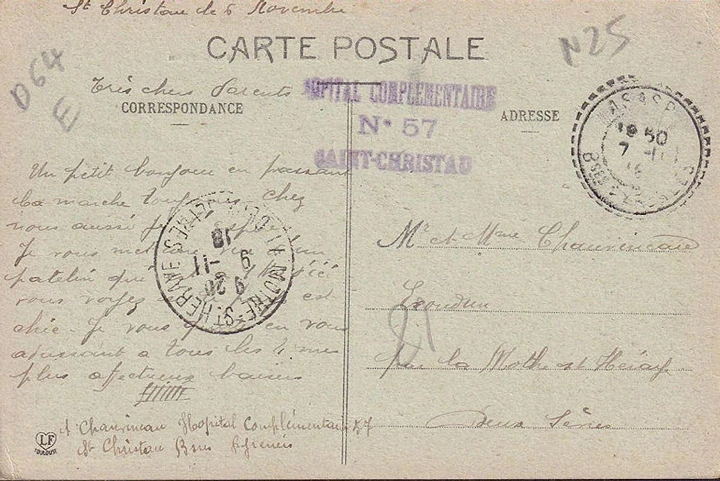 St Christau le 6 Novembre
CARTE POSTALE
D64
E
N25
Très chers Parents
CORRESPONDANCE
HOPITAL COMPLEMENTAIRE
N° 57
SAINT-CHRISTAU
ADRESSE
ASASP
18 50
7 -11
Bses PYRENEES
Un petit bonjour en passant
La marche toujours chez
vous aussi
Je vous
patelin
vous voyez est
chic. Je vous en vous
adressant a tous les 4 mes
plus affectueux baisers
LA MOTHE-ST HERAYE
DEUX SEVRES
9 20
9 -11
18
Mr et Mme Chauvineau
par la Mothe st Héraye
Deux Sèvres
Chauvineau Hopital Complémentaire 57
St Christau Bses Pyrénées
LF